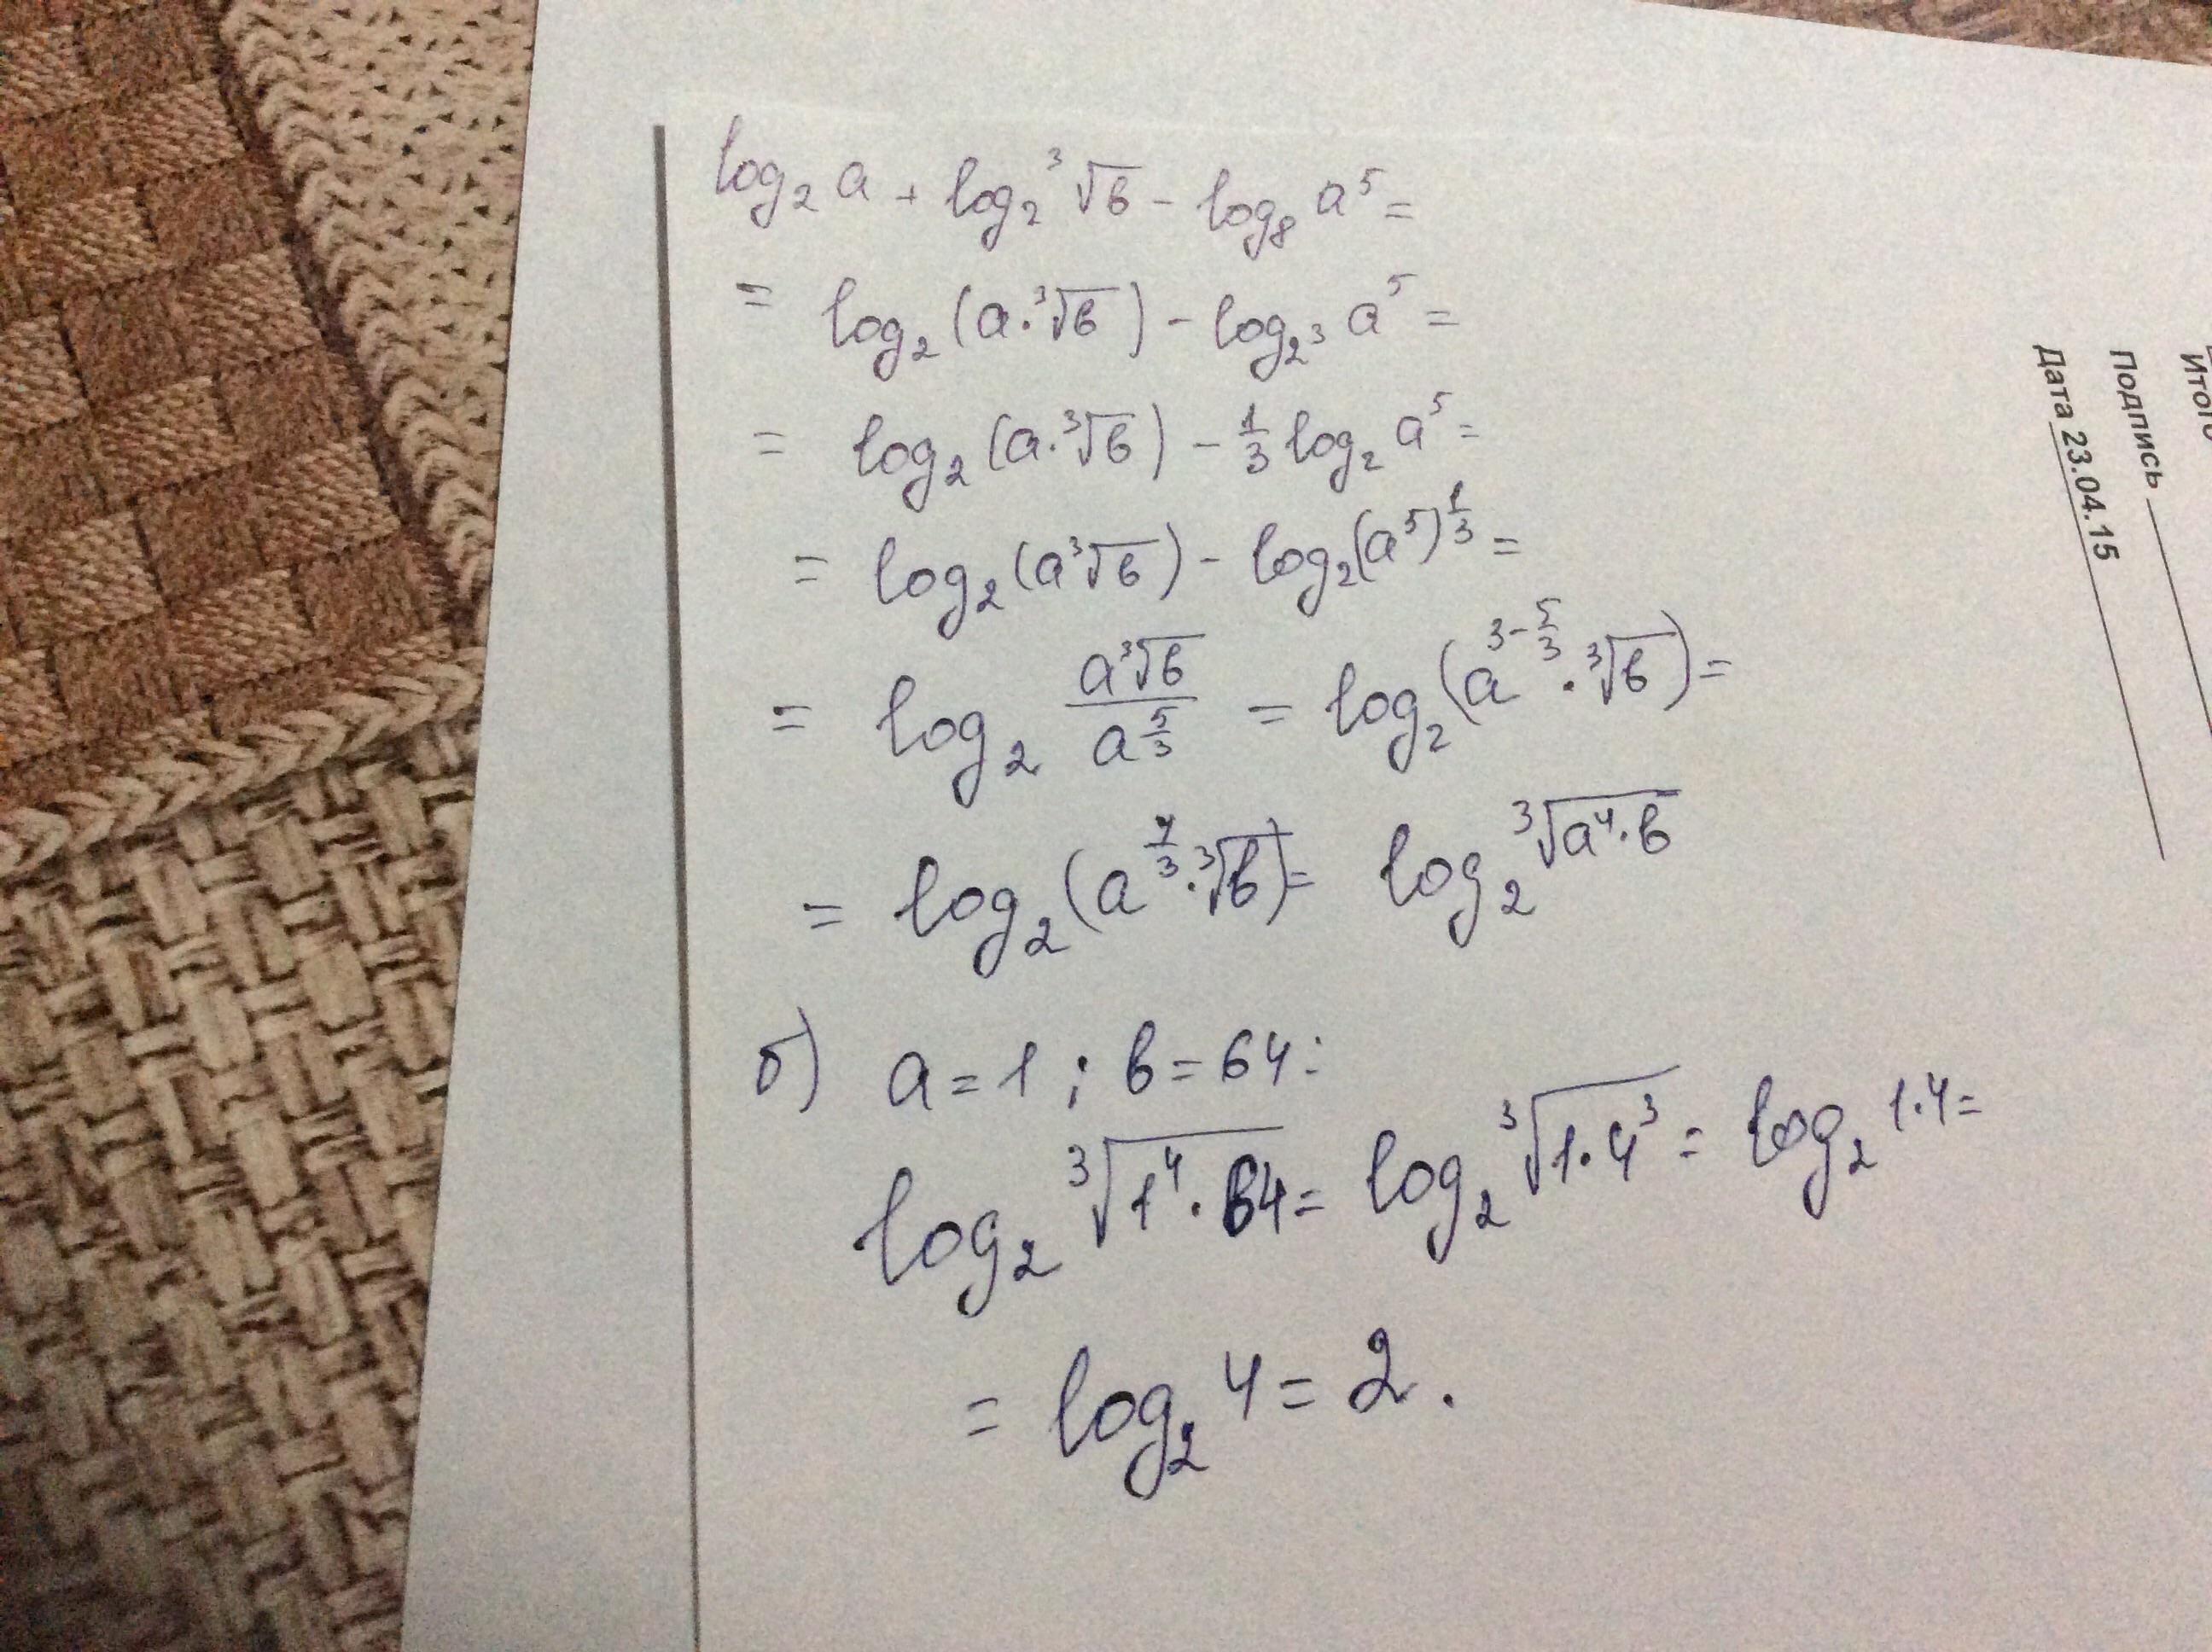 log₂ a + log₂ ³√в - log₈ a⁵ =
= log₂ (a·³√в) - log₂³ a⁵ =
= log₂ (a·³√в) - 1/3 log₂ a⁵ =
= log₂ (a³√в) - log₂(a⁵)^1/3 =
= log₂ a³√в / a^5/3 = log₂(a^3-5/3 · ³√в) =
= log₂(a^4/3 · ³√в) = log₂ ³√a⁴·в
б) a = 1 ; в = 64:
log₂ ³√1⁴·64 = log₂ ³√1·4³ = log₂ 1·4 =
= log₂ 4 = 2.
Итого
Подпись
Дата 23.04.15